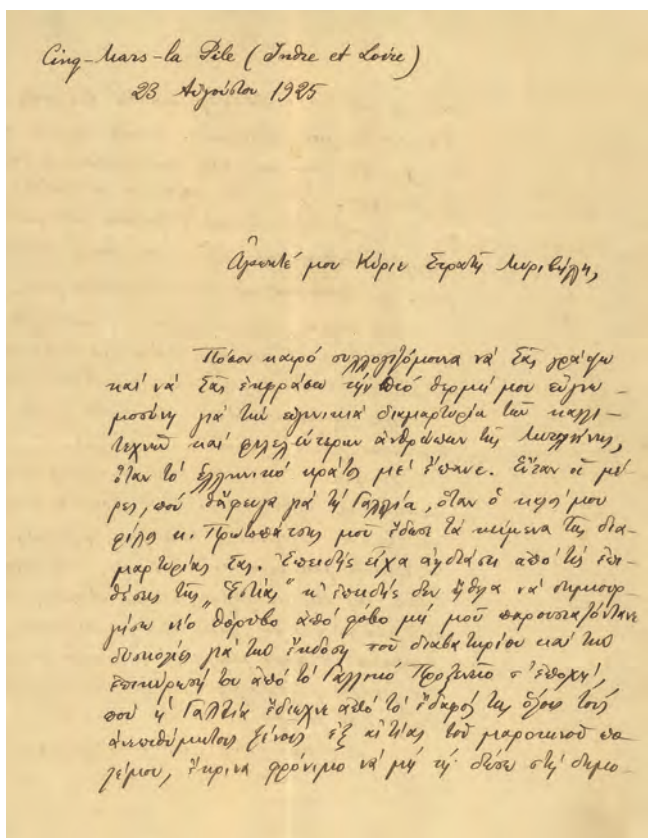 Cinq-Mars-la Pile (Indre et Loire)
23 Αὐγούστου 1925
Ἀγαπητέ μου Κύριε Στρατῆ Μυριβήλη,
Πόσον καιρό συλλογιζόμουνα νά Σᾶς γράψω
καί νά Σᾶς ἐκφράσω τήν πιό θερμή μου εὐγνω-
μοσύνη γιά τήν εὐγενικιά διαμαρτυρία τῶν καλλι-
τεχνῶν καί φιλελεύτερων ἀνθρώπων τῆς Μυτιλήνης,
ὅταν τό ἑλληνικό κράτος μέ ἔπαυε. Εἴταν οἱ μέ-
ρες, πού θἄφευγα γιά τή Γαλλία, ὅταν ὁ καλός μου
φίλος κ. Πρωτοπάτσης μοῦ ἔδωσε τά κείμενα τῆς δια-
μαρτυρίας Σας. Ἐπειδής εἶχα ἀηδιάσει ἀπό τίς ἐπι-
θέσεις τῆς "Ἑστίας" κ' ἐπειδής δέν ἤθελα νά δημιουρ-
γήσω νέο θόρυβο ἀπό φόβο μή μοῦ παρουσιαζόντανε
δυσκολίες γιά τήν ἔκδοση τοῦ διαβατηρίου καί τήν
ἐπικύρωσή του ἀπό τό Γαλλικό Προξενεῖο σ' ἐποχή,
πού ἡ Γαλλία ἔδιωχνε ἀπό τό ἔδαφός της ὅλους τούς
ἀνεπιθύμητους ξένους ἐξ αἰτίας τοῦ μαροκινοῦ πο-
λέμου, ἔκρινα φρόνιμο νά μή τή δώσω στή δημο-